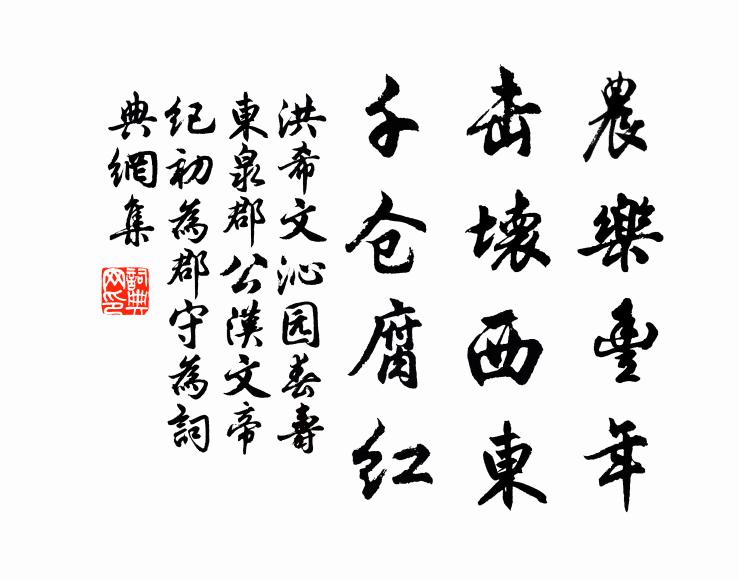 農樂豐年
击壞西東
千仓腐红
洪希文沁园春壽
東泉郡公漢文帝
纪初為郡守為詞
典網集
詞典
网印